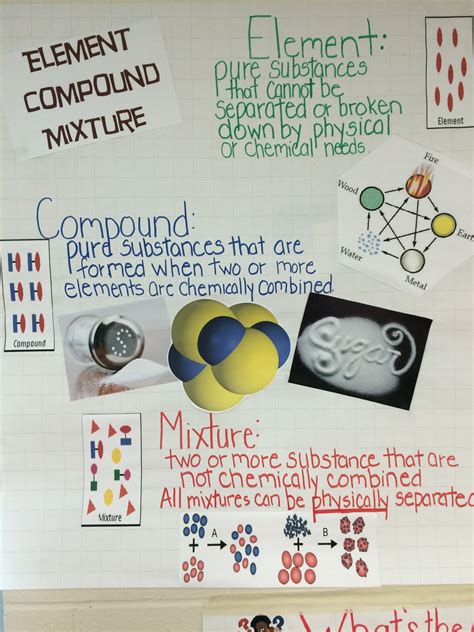 ELEMENT
COMPOUND
MIXTURE
Element:
pure substances
that cannot be
separated or broken
down by physical
or chemical needs.
Element
Fire
Wood
Earth
Water
Metal
Compound:
pure substances that are
formed when two or more
elements are chemically combined.
Compound
Sugar
Mixture:
two or more substance that are
not chemically combined
All mixtures can be physically separated
Mixture
A
B
What's the